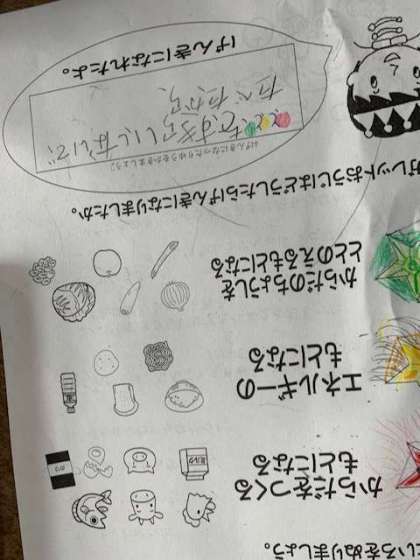 いろをぬりましょう。
からだをつくる
もとになる
ミルク
のり
エネルギーの
もとになる
からだのちょうしを
ととのえるもとになる
レットおうじはどうしたらげんきになりましたか。
(げんきになったりゆうをかきましょう)
しないで、
たべたから、
げんきになれたよ。